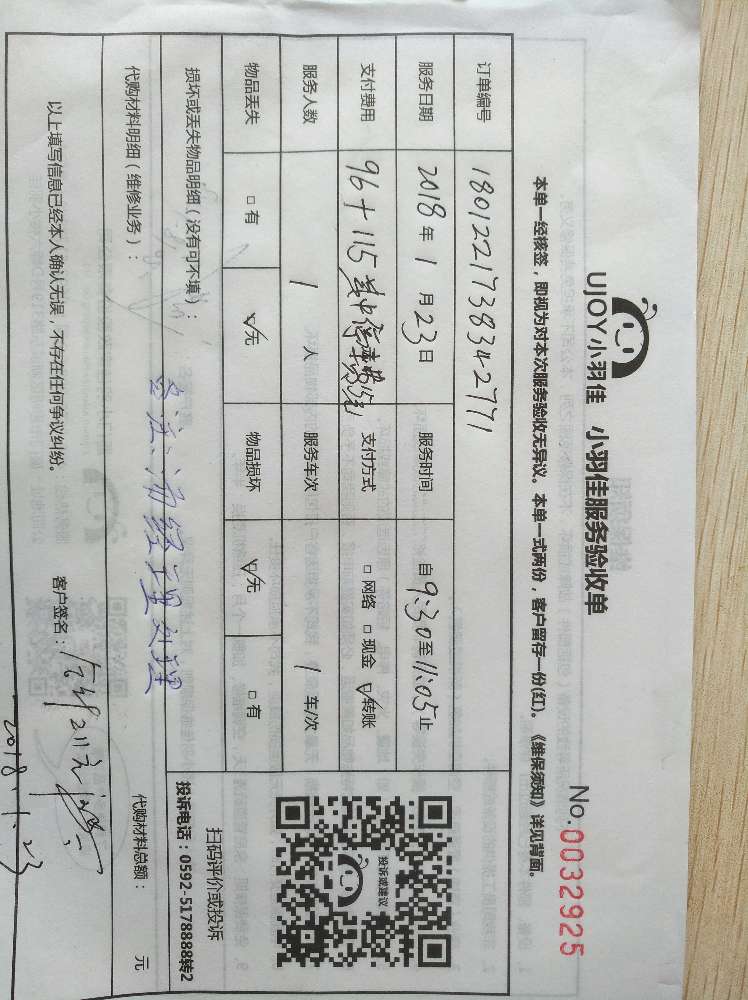 UJOY小羽佳 小羽佳服务验收单
No.0032925
本单一经核签,即视为对本次服务验收无异议。本单一式两份,客户留存一份(红)。《维保须知》详见背面。
订单编号 1801221738342771
服务日期 2018年1月23日 服务时间 自9:30至11:05止
支付费用 96+115 其中停车费 支付方式 □网络 □现金 ☑转账
服务人数 1人 服务车次 1车/次
物品丢失 □有 ☑无 物品损坏 ☑无 □有
损坏或丢失物品明细(没有可不填):
经理处理
投诉或建议
扫码评价或投诉
投诉电话:0592-5178888转2
代购材料明细(维修业务): 代购材料总额: 元
以上填写信息已经本人确认无误,不存在任何争议纠纷。
客户签名:
2018.1.23